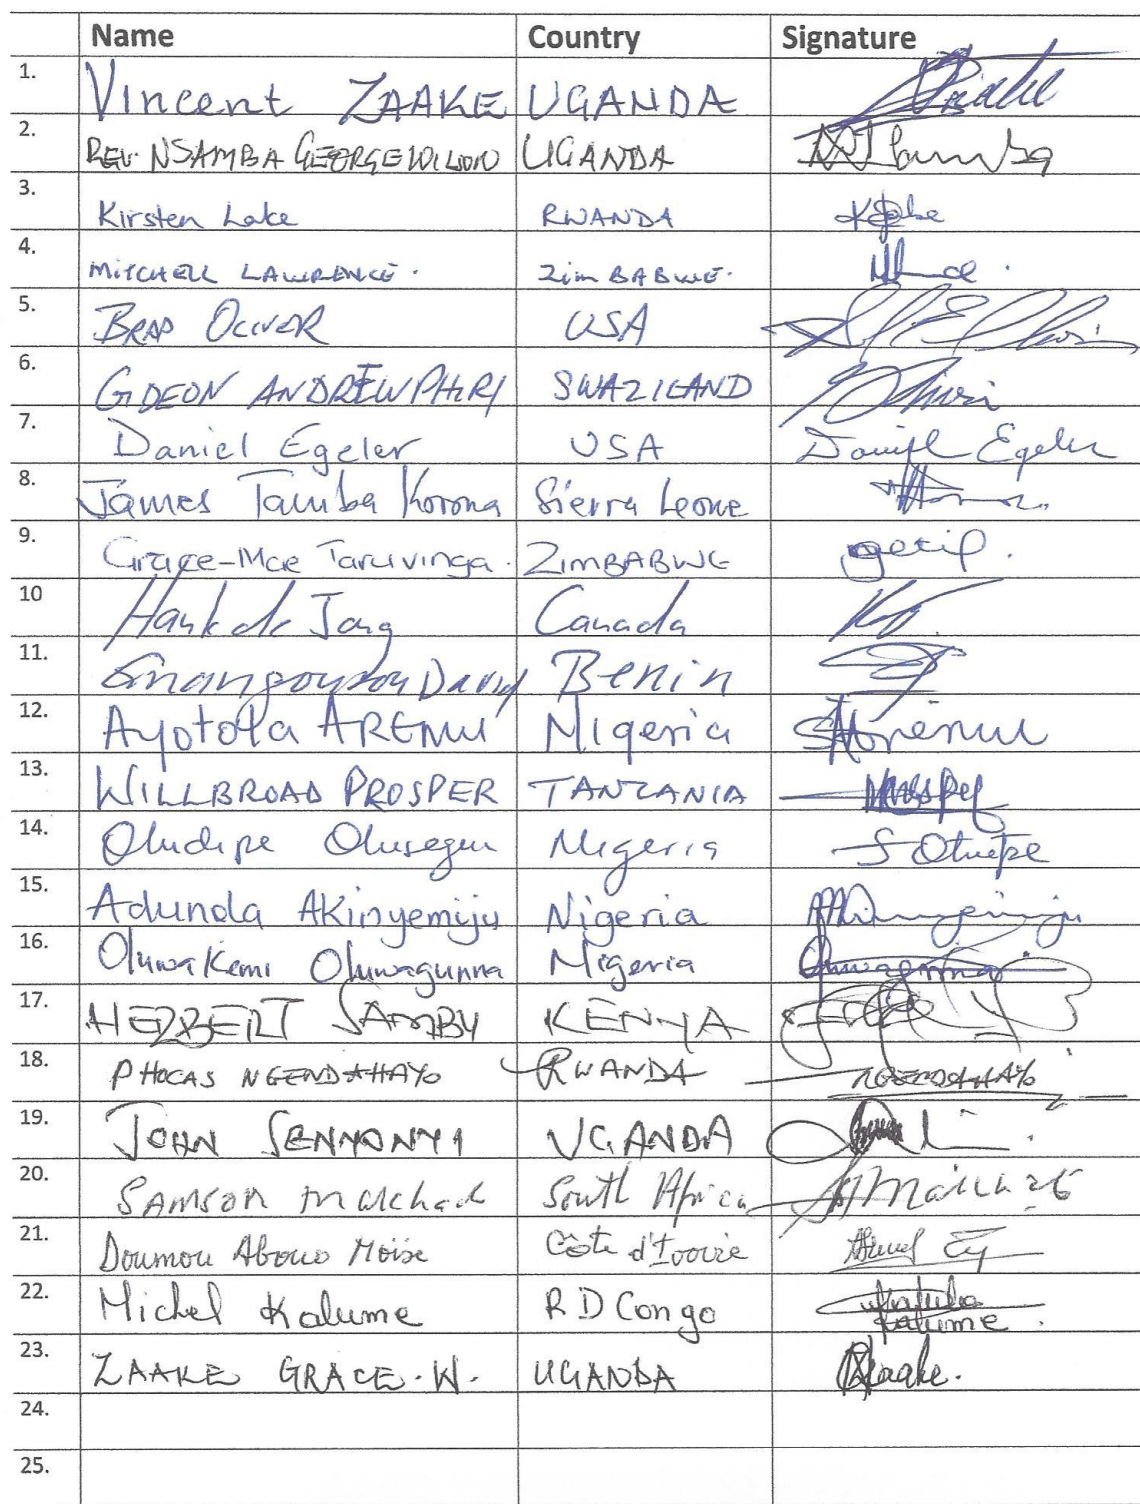 Name Country Signature
1. Vincent ZAAKE UGANDA
2. REV. NSAMBA GEORGE WILSON UGANDA
3. Kirsten Lake RWANDA
4. MITCHELL LAWRENCE. ZIMBABWE.
5. BRAD OLIVER USA
6. GIDEON ANDREW PHIRI SWAZILAND
7. Daniel Egeler USA Daniel Egeler
8. James Tamba Koroma Sierra Leone
9. Grace-Mae Taruvinga. ZIMBABWE
10 Hank de Jong Canada
11. David Benin
12. Ayotola AREMU Nigeria
13. WILLBROAD PROSPER TANZANIA
14. Oludipe Olusegun Nigeria
15. Adunola Akinyemiju Nigeria
16. Oluwakemi Oluwagunna Nigeria
17. HERBERT SAMBY KENYA
18. PHOCAS NGENDAHAYO RWANDA NGENDAHAYO
19. JOHN SENYONYI UGANDA
20. SAMSON South Africa
21. Doumou Abouo Moïse Côte d'Ivoire
22. Michel Kalume R D Congo Kalume.
23. ZAAKE GRACE. W. UGANDA
24.
25.